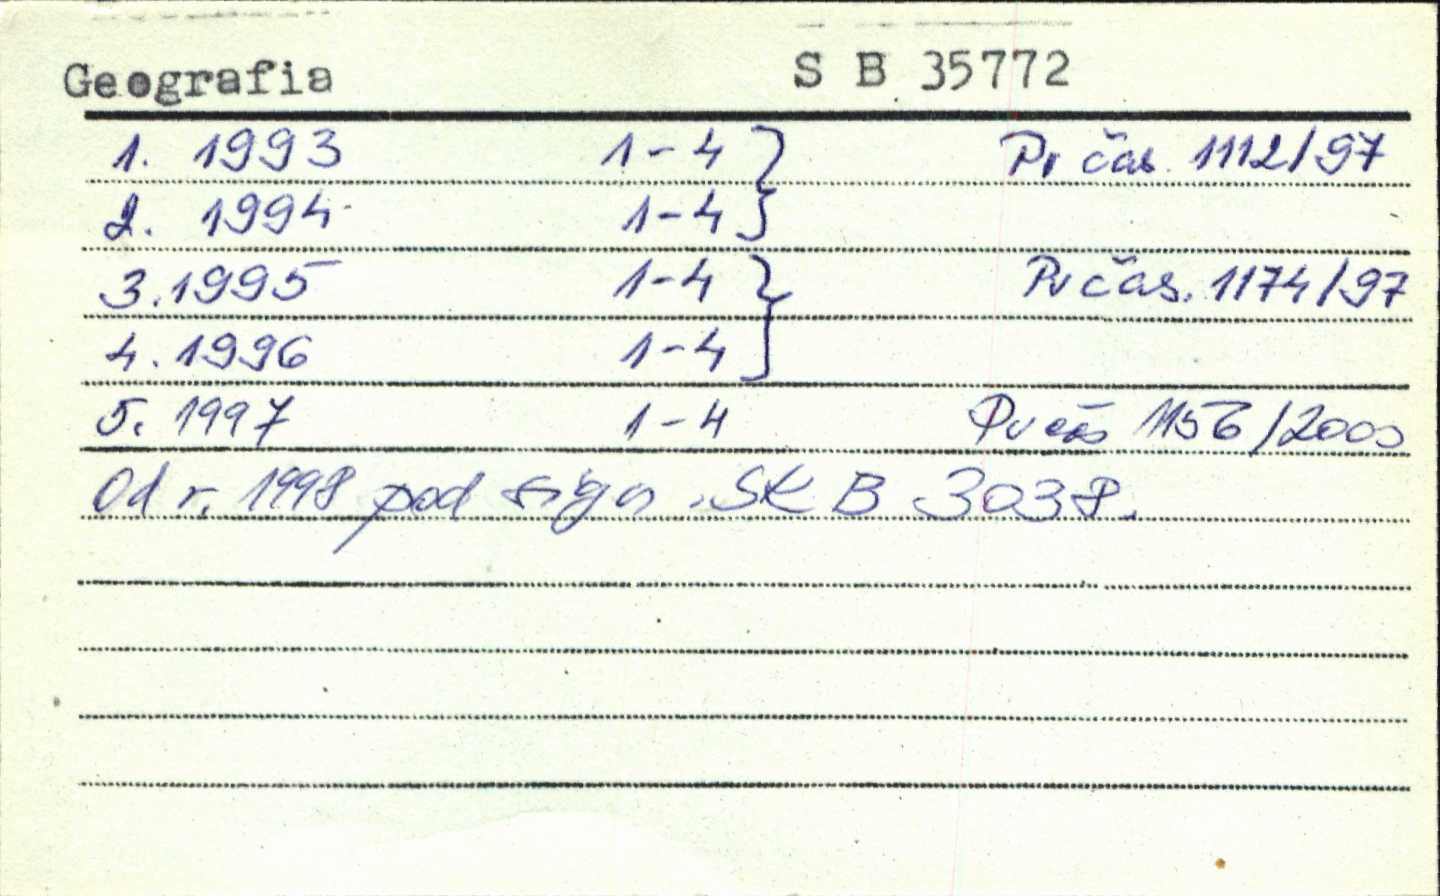 Geografia S B 35772
1. 1993 1-4 } Pr čas. 1112/97
2. 1994 1-4
3. 1995 1-4 } Pr čas. 1174/97
4. 1996 1-4
5. 1997 1-4 Pr čas 1156/2000
Od r. 1998 pod sign. SK B 3038.